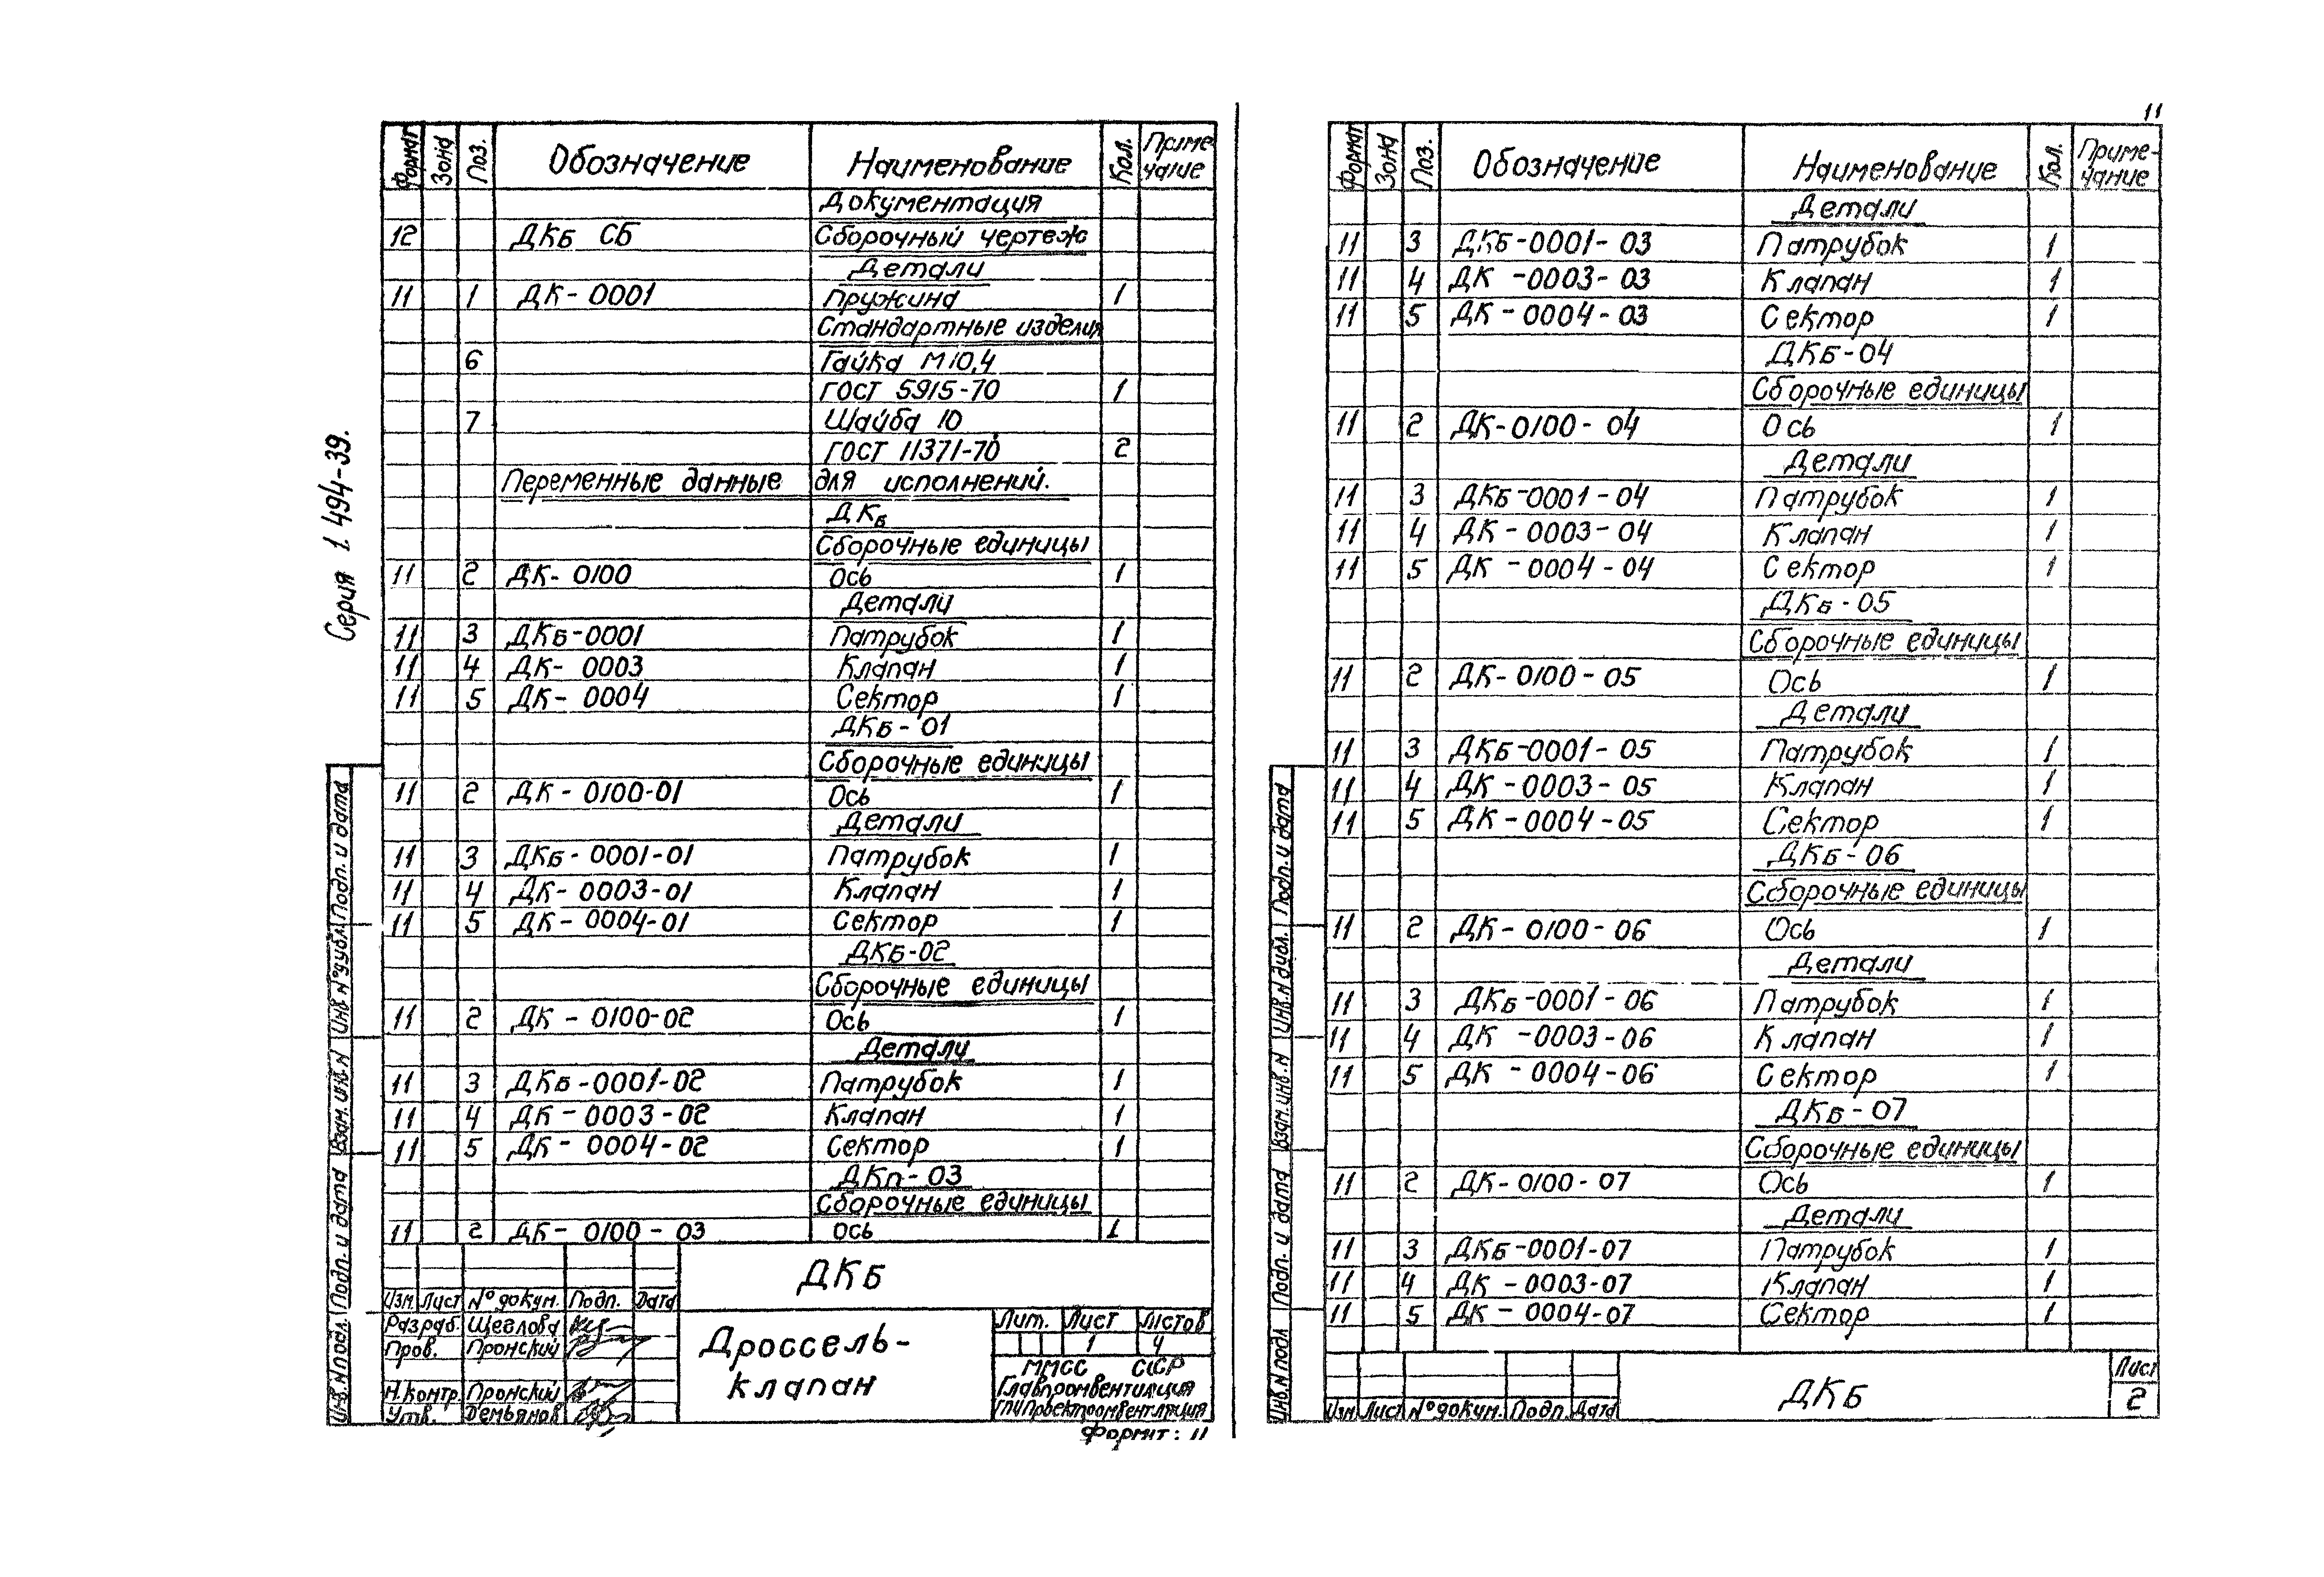 11
Серия 1.494-39.
Формат Зона Поз. Обозначение Наименование Кол. Примечание
Документация
12 ДКБ СБ Сборочный чертеж
Детали
11 1 ДК-0001 Пружина 1
Стандартные изделия
6 Гайка М10,4
ГОСТ 5915-70 1
7 Шайба 10
ГОСТ 11371-70 2
Переменные данные для исполнений.
ДКБ
Сборочные единицы
11 2 ДК-0100 Ось 1
Детали
11 3 ДКБ-0001 Патрубок 1
11 4 ДК-0003 Клапан 1
11 5 ДК-0004 Сектор 1
ДКБ-01
Сборочные единицы
11 2 ДК-0100-01 Ось 1
Детали
11 3 ДКБ-0001-01 Патрубок 1
11 4 ДК-0003-01 Клапан 1
11 5 ДК-0004-01 Сектор 1
ДКБ-02
Сборочные единицы
11 2 ДК-0100-02 Ось 1
Детали
11 3 ДКБ-0001-02 Патрубок 1
11 4 ДК-0003-02 Клапан 1
11 5 ДК-0004-02 Сектор 1
ДКп-03
Сборочные единицы
11 2 ДК-0100-03 Ось 1
ДКБ
Изм. Лист № докум. Подп. Дата
Разраб. Щеглова
Пров. Пронский
Н.контр. Пронский
Утв. Демьянов
Дроссель-
клапан
Лит. Лист Листов
1 4
ММСС СССР
Главпромвентиляция
ГПИ Проектпромвентиляция
Формат: 11
Инв.№ подл. Подп. и дата Взам.инв.№ Инв.№ дубл. Подп. и дата
Формат Зона Поз. Обозначение Наименование Кол. Приме-
чание
Детали
11 3 ДКБ-0001-03 Патрубок 1
11 4 ДК-0003-03 Клапан 1
11 5 ДК-0004-03 Сектор 1
ДКБ-04
Сборочные единицы
11 2 ДК-0100-04 Ось 1
Детали
11 3 ДКБ-0001-04 Патрубок 1
11 4 ДК-0003-04 Клапан 1
11 5 ДК-0004-04 Сектор 1
ДКБ-05
Сборочные единицы
11 2 ДК-0100-05 Ось 1
Детали
11 3 ДКБ-0001-05 Патрубок 1
11 4 ДК-0003-05 Клапан 1
11 5 ДК-0004-05 Сектор 1
ДКБ-06
Сборочные единицы
11 2 ДК-0100-06 Ось 1
Детали
11 3 ДКБ-0001-06 Патрубок 1
11 4 ДК-0003-06 Клапан 1
11 5 ДК-0004-06 Сектор 1
ДКБ-07
Сборочные единицы
11 2 ДК-0100-07 Ось 1
Детали
11 3 ДКБ-0001-07 Патрубок 1
11 4 ДК-0003-07 Клапан 1
11 5 ДК-0004-07 Сектор 1
Изм Лист № докум. Подп. Дата
ДКБ
Лист
2
Инв.№ подл Подп. и дата Взам.инв.№ Инв.№ дубл. Подп. и дата